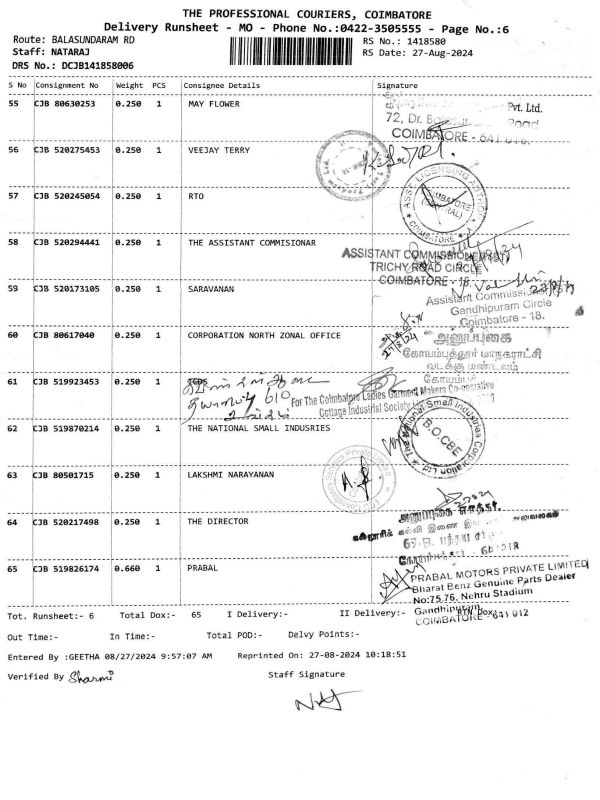 THE PROFESSIONAL COURIERS, COIMBATORE
Delivery Runsheet - MO - Phone No.:0422-3505555 - Page No.:6
Route: BALASUNDARAM RD
RS No.: 1418580
Staff: NATARAJ
RS Date: 27-Aug-2024
DRS No.: DCJB141858006
S No Consignment No Weight PCS Consignee Details Signature
55 CJB 80630253 0.250 1 MAY FLOWER
Pvt. Ltd.
72, Dr. Road
COIMBATORE - 641 018.
56 CJB 520275453 0.250 1 VEEJAY TERRY
57 CJB 520245054 0.250 1 RTO
ASST. LICENSING AUTHORITY
COIMBATORE
(CENTRAL)
COIMBATORE
58 CJB 520294441 0.250 1 THE ASSISTANT COMMISIONAR
ASSISTANT COMMISSIONER (ST)
TRICHY ROAD CIRCLE
COIMBATORE - 18.
59 CJB 520173105 0.250 1 SARAVANAN
Assistant Commissioner
Gandhipuram Circle
Coimbatore - 18.
60 CJB 80617040 0.250 1 CORPORATION NORTH ZONAL OFFICE
27/8/24
அனுப்புகை
கோயம்புத்தூர் மாநகராட்சி
வடக்கு மண்டலம்
61 CJB 519923453 0.250 1 ICDS
610
For The Coimbatore Ladies Garment Makers Co-operative
Cottage Industrial Society
62 CJB 519870214 0.250 1 THE NATIONAL SMALL INDUSRIES
The National Small Industries Corporation Ltd.
B.O.CBE
63 CJB 80501715 0.250 1 LAKSHMI NARAYANAN
64 CJB 520217498 0.250 1 THE DIRECTOR
65 CJB 519826174 0.660 1 PRABAL
PRABAL MOTORS PRIVATE LIMITED
Bharat Benz Genuine Parts Dealer
No:75,76, Nehru Stadium
Gandhipuram
COIMBATORE - 641 012
Tot. Runsheet:- 6 Total Dox:- 65 I Delivery:- II Delivery:- RTN Dox:-
Out Time:- In Time:- Total POD:- Delvy Points:-
Entered By :GEETHA 08/27/2024 9:57:07 AM Reprinted On: 27-08-2024 10:18:51
Verified By Sharmi
Staff Signature